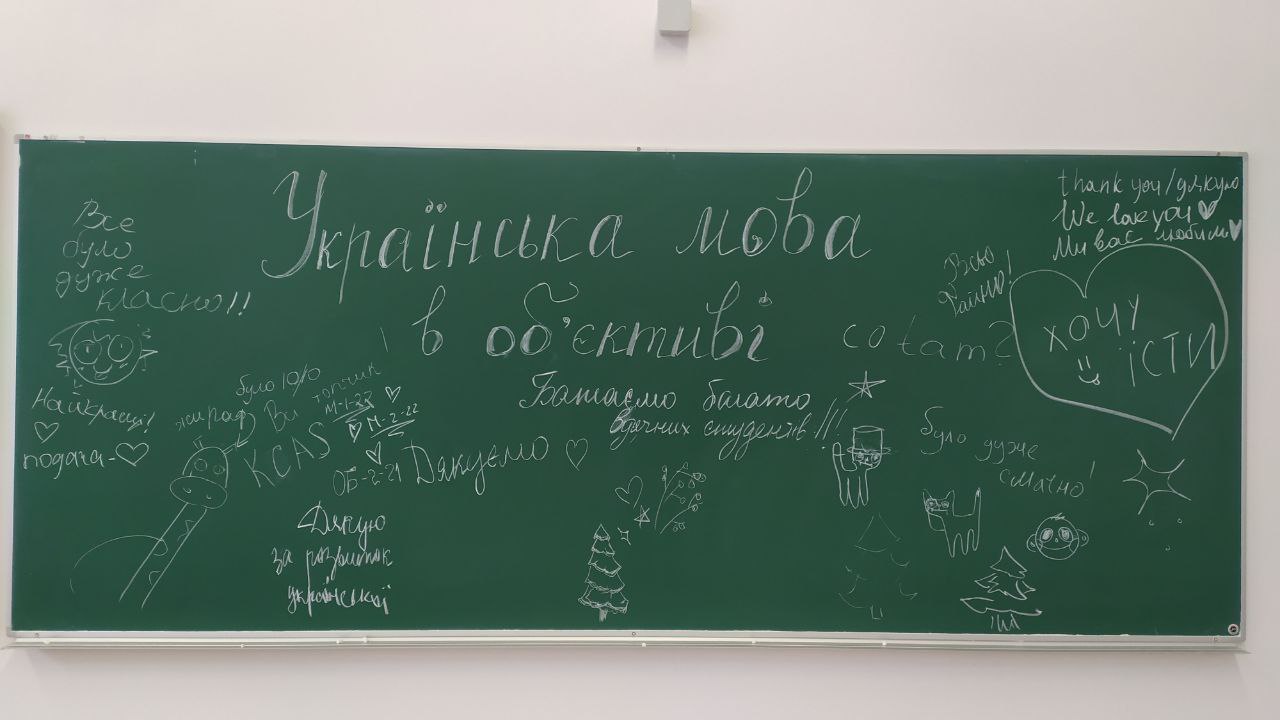 Українська мова
в об'єктиві
Все
було
дуже
класно!!
Найкращі!
подача -
жираф
було 10/10
Ви топчик
М-1-23
М-2-22
KCAS
ОБ-2-21 Дякуємо
Дякую
за розвиток
української
Бажаємо багато
вдячних студентів!!!
co tam?
Всьо
Файно!
thank you/дякую
We love you
Ми вас любимо
хочу
їсти
було дуже
смачно!